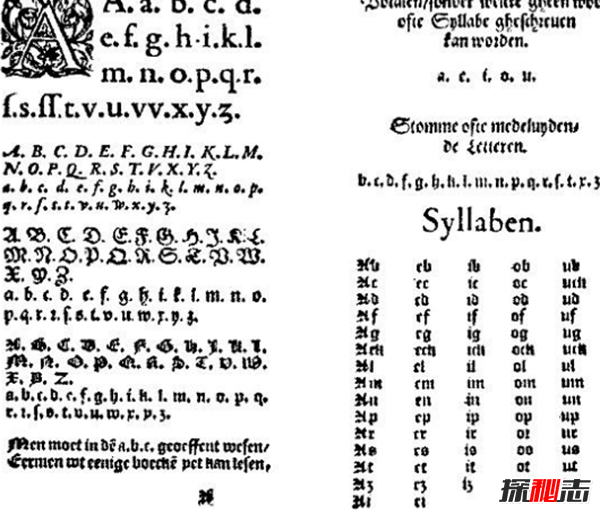 A A. a. b. c. d.
e. f. g. h. i. k. l.
m. n. o. p. q. r.
ſ. s. ſſ. t. v. u. vv. x. y. z.
A. B. C. D. E. F. G. H. I. K. L. M.
N. O. P. Q. R. S. T. V. X. Y. Z.
a. b. c. d. e. f. g. h. i. k. l. m. n. o. p.
q. r. ſ. s. t. v. u. w. x. y. z.
A. B. C. D. E. F. G. H. I. K. L.
M. N. O. P. Q. R. S. T. V. W.
X. Y. Z.
a. b. c. d. e. f. g. h. i. k. l. m. n. o.
p. q. r. ꝛ. ſ. s. t. v. u. w. x. y. z.
A. B. C. D. E. F. G. H. I. K. L.
M. N. O. P. Q. R. S. T. V. W.
X. Y. Z.
a. b. c. d. e. f. g. h. i. k. l. m. n. o. p. q.
r. ꝛ. ſ. s. t. v. u. w. x. y. z.
Men moet in dē a.b.c. geoeffent wesen/
Eermen wt eenige boeckē yet kan lesen,
ofte Syllabe gheschreuen
kan worden.
a. e. i. o. u.
Stomme ofte medeluyden/
de Letteren.
b. c. d. f. g. h. k. l. m. n. p. q. r. ſ. t. x. z
Syllaben.
Ab eb ib ob ub
Ac ec ic oc uch
Ad ed id od ud
Af ef if of uf
Ag eg ig og ug
Ach ech ich och uch
Al el il ol ul
Am em im om um
An en in on un
Ap ep ip op up
Ar er ir or ur
As es is os us
At et it ot ut
Az ez iz
探秘志